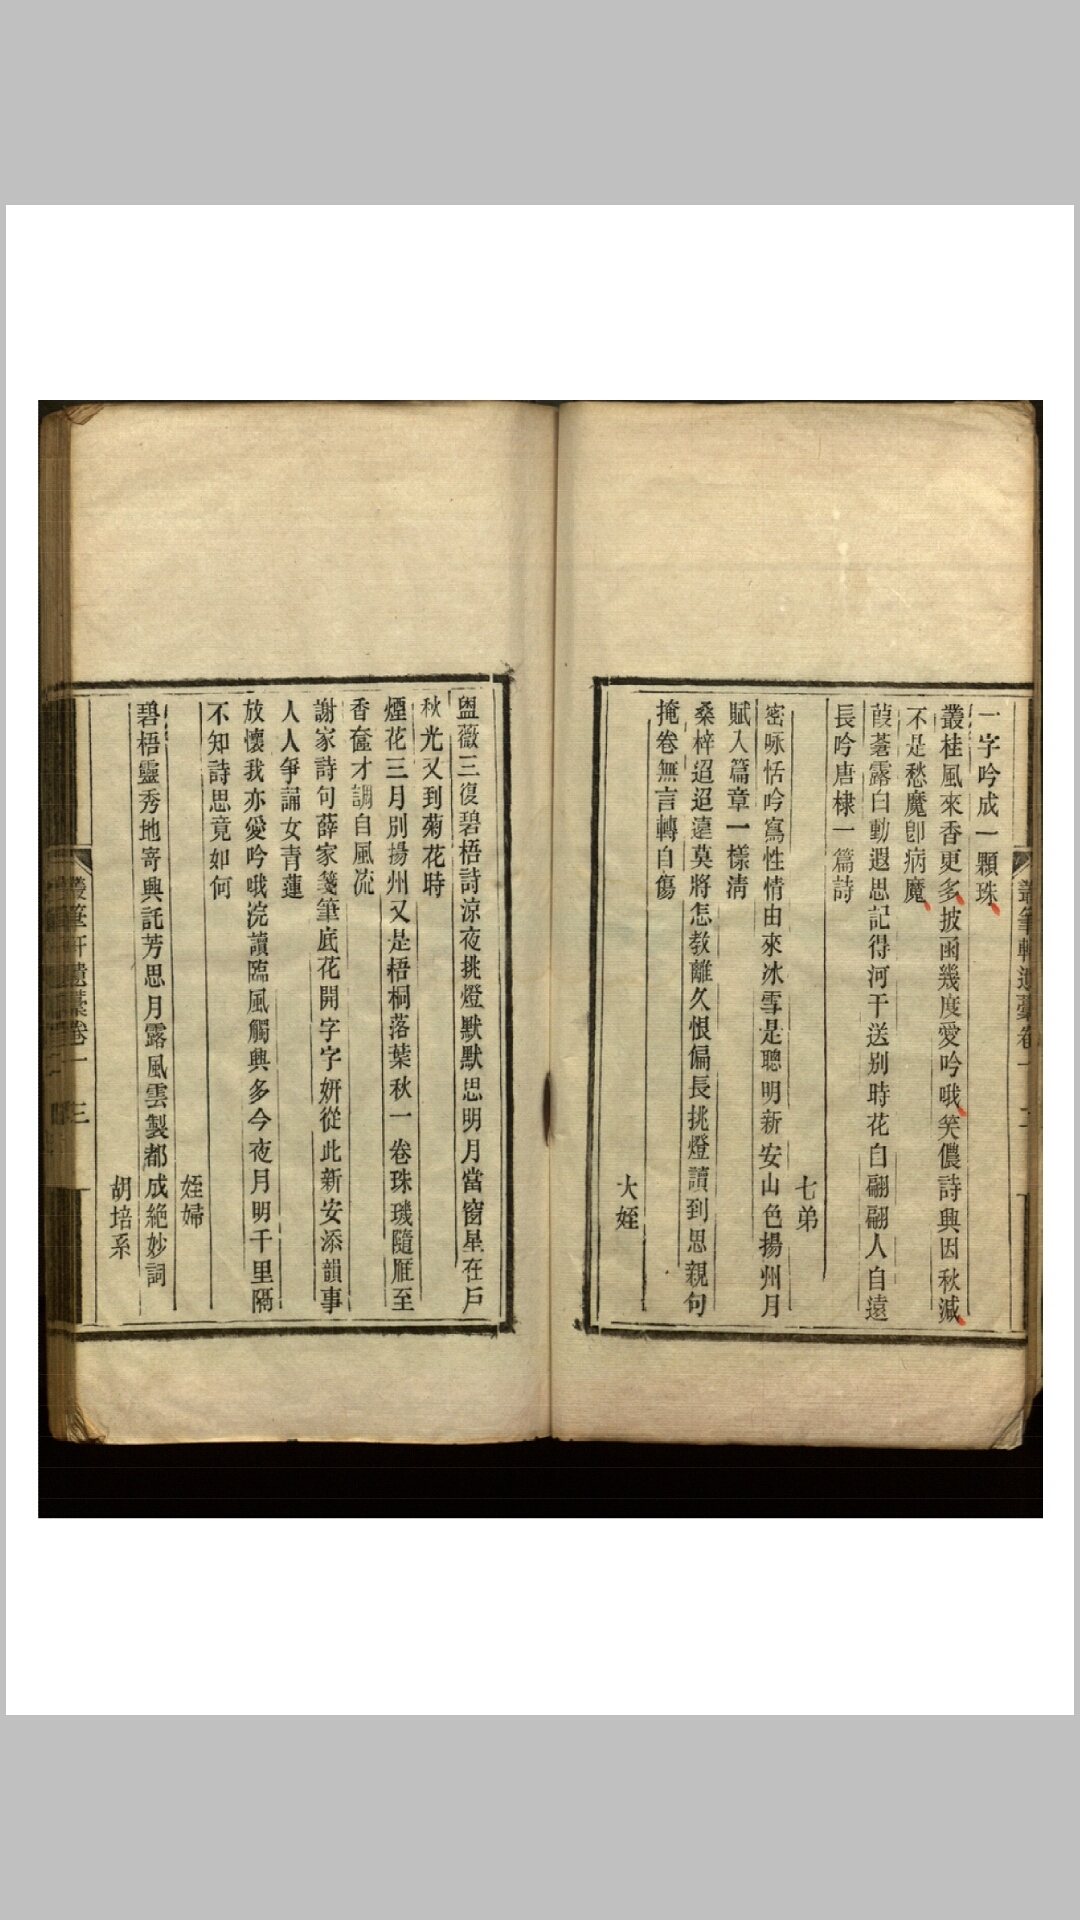 叢筆軒遺藁卷一
一字吟成一顆珠
叢桂風來香更多披函幾度愛吟哦笑儂詩興因秋減
不是愁魔卽病魔
葭蒼露白動遐思記得河干送别時花白翩翩人自遠
長吟唐棣一篇詩
七弟
密咏恬吟寫性情由來冰雪是聰明新安山色揚州月
賦入篇章一樣淸
桑梓迢迢違莫將怎教離久恨偏長挑燈讀到思親句
掩卷無言轉自傷
大姪
盥薇三復碧梧詩凉夜挑燈默默思明月當窗星在戶
秋光又到菊花時
煙花三月別揚州又是梧桐落葉秋一卷珠璣隨雁至
香奩才調自風流
謝家詩句薛家箋筆底花開字字妍從此新安添韻事
人人爭誦女青蓮
放懷我亦愛吟哦浣讀臨風觸興多今夜月明千里隔
不知詩思竟如何
姪婦
碧梧靈秀地寄興託芳思月露風雲製都成絕妙詞
胡培系
叢筆軒遺藁卷一
三